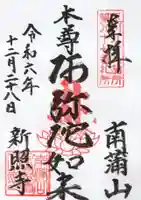 奉拝
南蒲山
本尊
阿弥陀如来
令和六年
十二月二十八日
新照寺